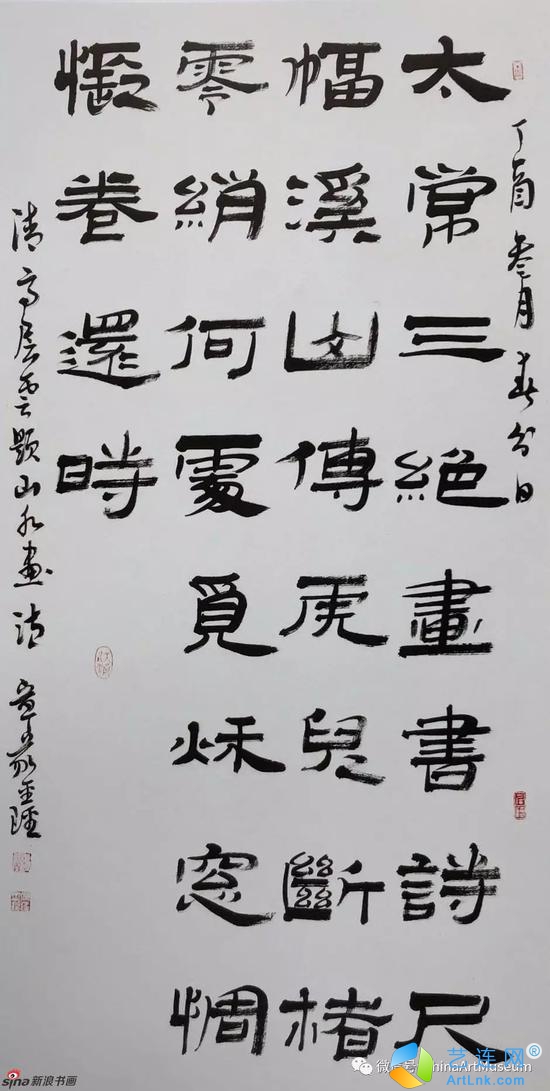 丁酉叁月春分日
太常三絕畫書詩尺
幅溪山傳虎兒斷楮
零綃何處覓秌窓惆
悵卷還時
清高层雲題山水畫詩
sina新浪书画
微信号 ChinaArtMuseum
艺连网®
ArtLnk.com